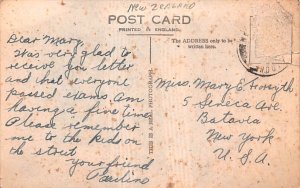 NEW ZEALAND
POST CARD
PRINTED IN ENGLAND.
The ADDRESS only to be
written here.
THIS IS A REAL PHOTOGRAPH.
Dear Mary,
Was very glad to
receive you letter
and had everyone
passed exams. Am
having a fine time
Please remember
me to the kids on
the street
your friend
Pauline
Miss. Mary E Forsyth
5 Seneca Ave.
Batavia
New York.
U. S. A.